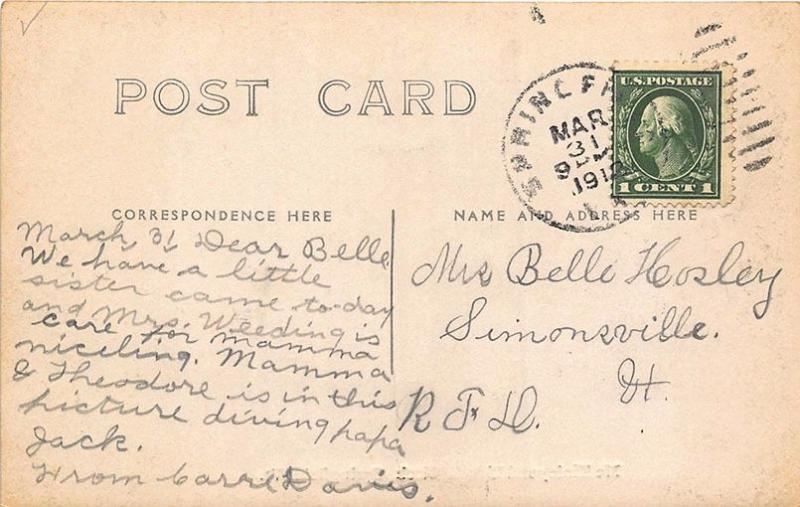 POST CARD
SPRINGFI
MAR
31
1912
U.S. POSTAGE
1 CENT 1
CORRESPONDENCE HERE
NAME AND ADDRESS HERE
March, 31, Dear Belle
We have a little
sister came to-day
and Mrs. Weeding is
care for mamma
niceling. Mamma
& Theodore is in this
picture diving papa
Jack.
From Carre Davis.
Mrs Belle Hosley
Simonsville.
Vt.
R. F. D.